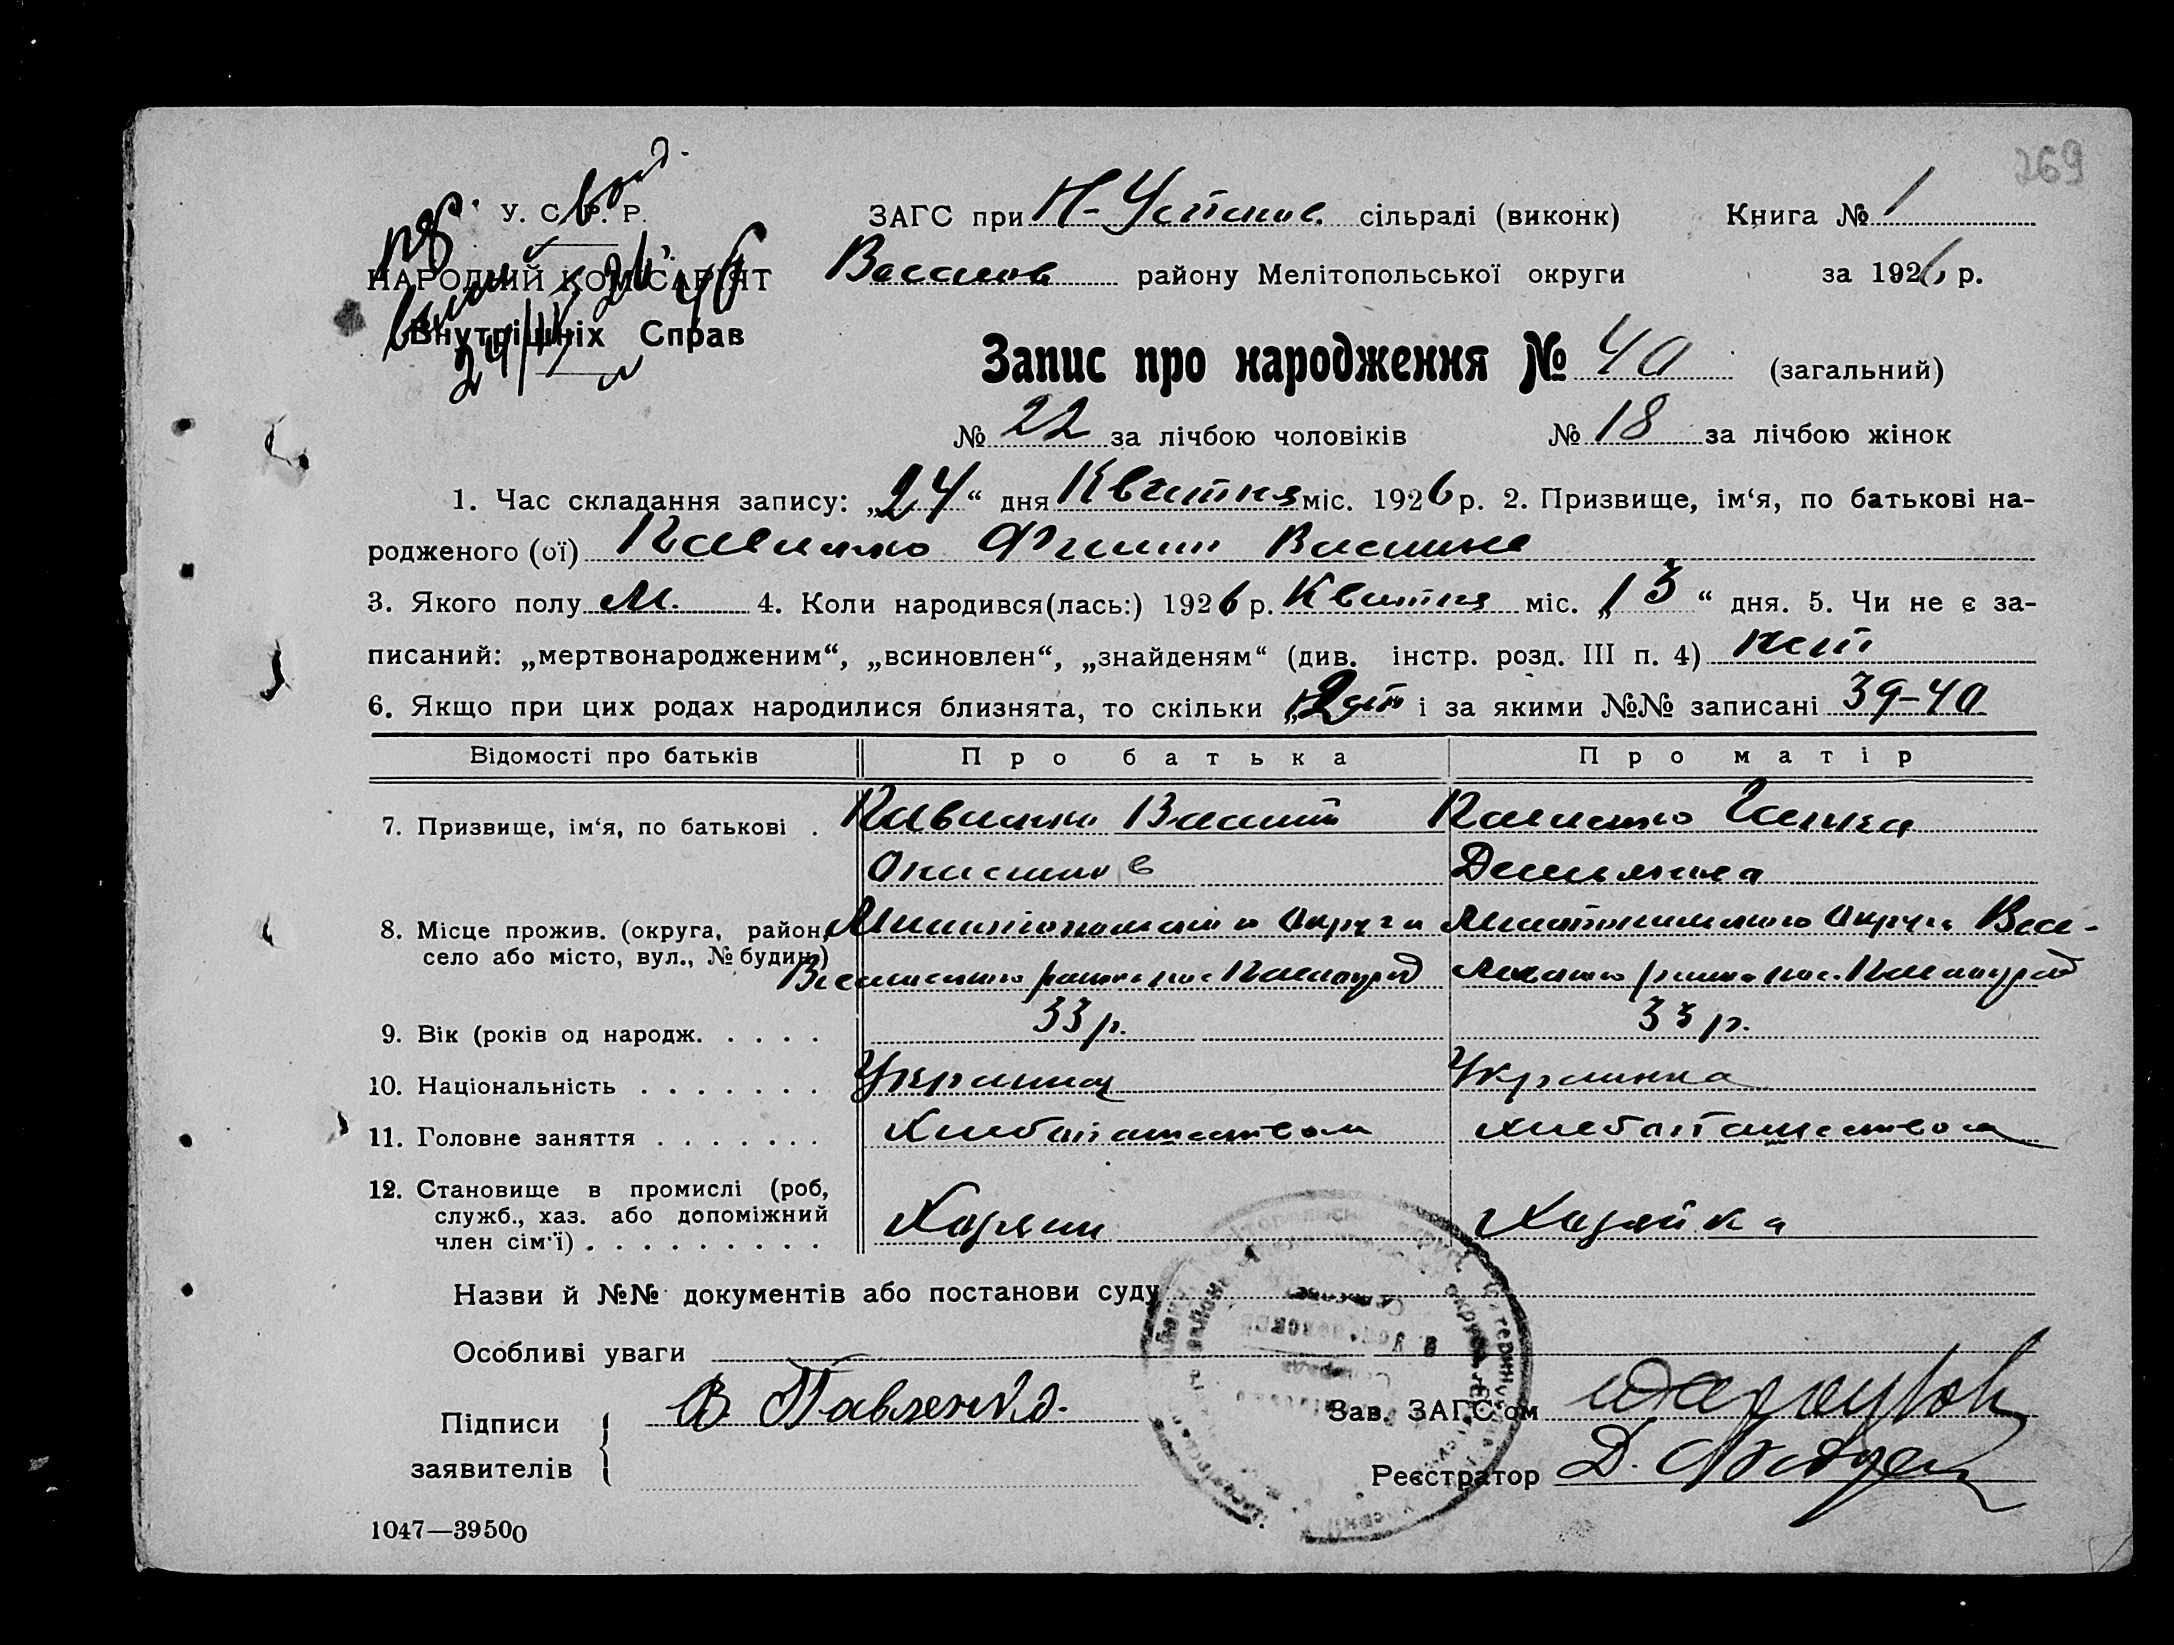 269
У. С. Р. Р.
НАРОДНИЙ КОМІСАРІЯТ
Внутрішніх Справ
ЗАГС при Н-Успенов. сільраді (виконк) Книга № 1
Веселов району Мелітопольської округи за 1926 р.
Запис про народження № 40 (загальний)
№ 22 за лічбою чоловіків № 18 за лічбою жінок
1. Час складання запису: „24“ дня Квитня міс. 1926 р. 2. Призвище, ім‘я, по батькові на-
родженого (ої) Павленко Филип
3. Якого полу М. 4. Коли народився(лась:) 1926 р. Квитня міс. „13“ дня. 5. Чи не є за-
писаний: „мертвонародженим“, „всиновлен“, „знайденям“ (див. інстр. розд. III п. 4) нет
6. Якщо при цих родах народилися близнята, то скільки „2 і за якими №№ записані 39-40
Відомості про батьків Про батька Про матір
7. Призвище, ім‘я, по батькові . Павленко Василь Павленко Ганна
8. Місце прожив. (округа, район, Мелитопольскои Округи Мелитопольскои Округи Весе-
село або місто, вул., № будин.) Веселовского района пос. ловского района пос.
9. Вік (років од народж. . . . . 33 р. 33 р.
10. Національність . . . . . . . Украинец Украинка
11. Головне заняття . . . . . . . Хлебопашеством хлебопашеством
12. Становище в промислі (роб,
служб., хаз. або допоміжний Хазяин Хазяйка
член сім‘ї) . . . . . . . . .
Назви й №№ документів або постанови суду
Особливі уваги
Підписи В. Павленко. Зав. ЗАГС‘ом
заявителів Реєстратор Д.
1047—39500